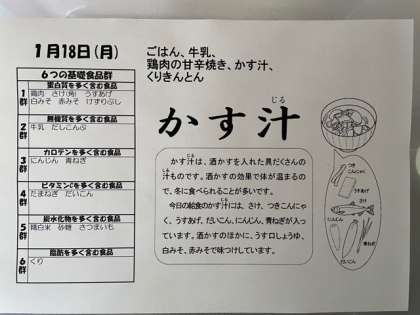 1月18日(月)
ごはん、牛乳、
鶏肉の甘辛焼き、かす汁、
くりきんとん
6つの基礎食品群
蛋白質を多く含む食品
1群
鶏肉 さけ(角) うすあげ
白みそ 赤みそ けずりぶし
無機質を多く含む食品
2群
牛乳 だしこんぶ
カロテンを多く含む食品
3群
にんじん 青ねぎ
ビタミンCを多く含む食品
4群
たまねぎ だいこん
炭水化物を多く含む食品
5群
精白米 砂糖 さつまいも
脂肪を多く含む食品
6群
くり
かす汁
じる
かす汁は、酒かすを入れた具だくさんの
汁ものです。酒かすの効果で体が温まるの
で、冬に食べられることが多いです。
今日の給食のかす汁には、さけ、つきこんにゃ
く、うすあげ、だいこん、にんじん、青ねぎが入っ
ています。酒かすのほかに、うす口しょうゆ、
白みそ、赤みそで味つけしています。
つき
こんにゃく
うすあげ
さけ
にんじん
だいこん